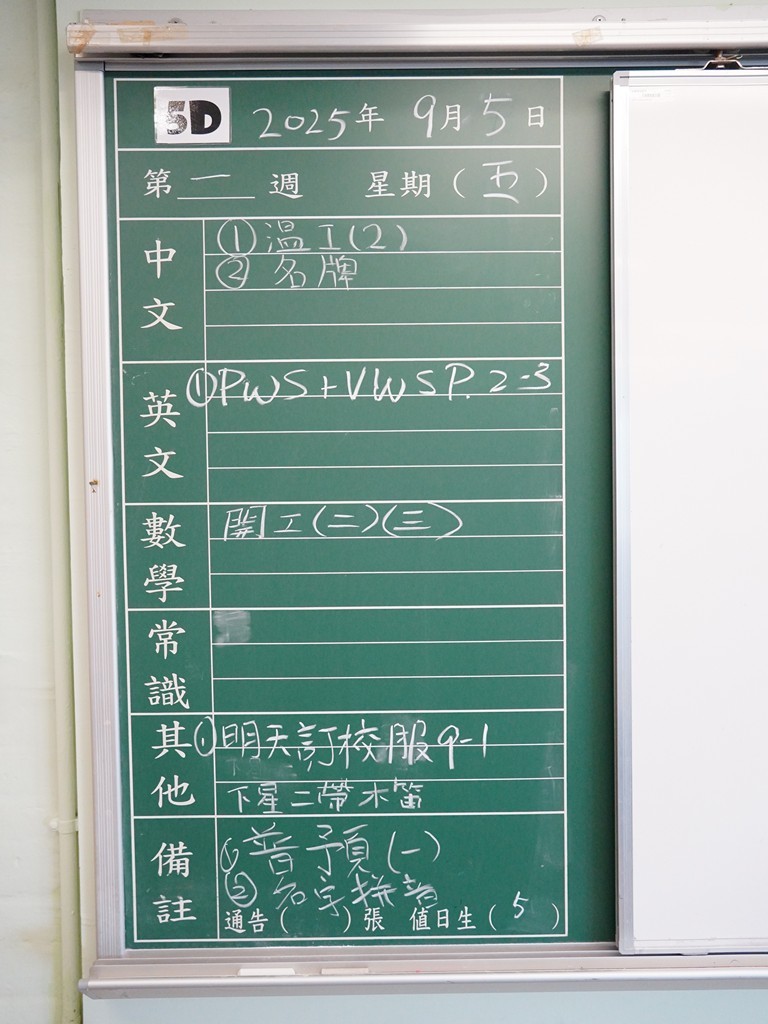 5D 2025年 9月 5日
第 一 週 星期 ( 五 )
中文
① 溫工(2)
② 名牌
英文
① PWS + VWS P. 2-3
數學
開工(二)(三)
常識
其他
① 明天訂校服 9-1
下星二帶木笛
備註
① 普預(一)
② 名字拼音
通告 ( ) 張 值日生 ( 5 )